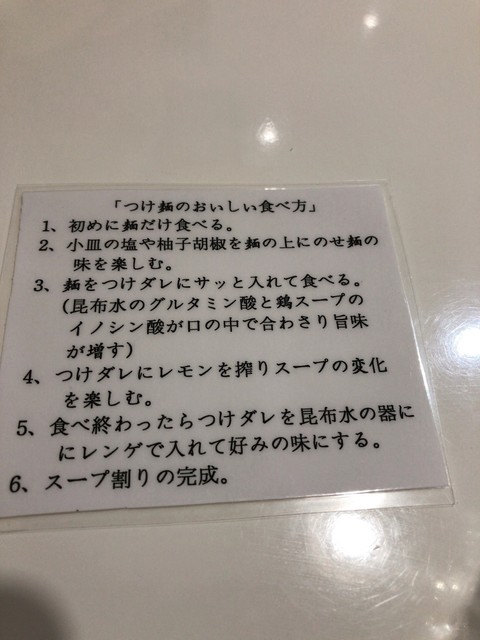 「つけ麺のおいしい食べ方」
1、初めに麺だけ食べる。
2、小皿の塩や柚子胡椒を麺の上にのせ麺の
味を楽しむ。
3、麺をつけダレにサッと入れて食べる。
(昆布水のグルタミン酸と鶏スープの
イノシン酸が口の中で合わさり旨味
が増す)
4、つけダレにレモンを搾りスープの変化
を楽しむ。
5、食べ終わったらつけダレを昆布水の器に
にレンゲで入れて好みの味にする。
6、スープ割りの完成。